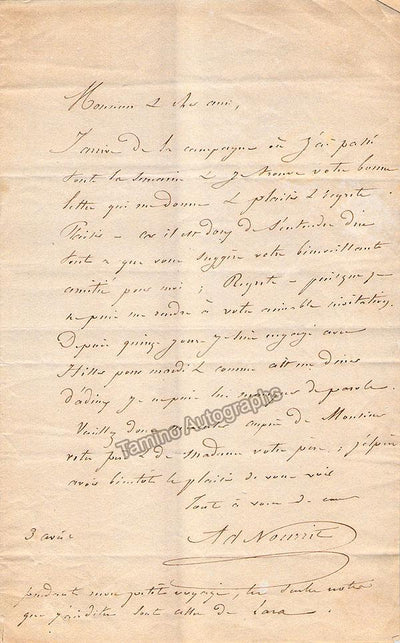 Monsieur & cher ami,
J'arrive de la campagne où j'ai passé
toute la semaine & je trouve votre bonne
lettre qui me donne & plaisir & regrets
Plaisir – car il est doux de s'entendre dire
tout ce que vous suggère votre bienveillante
amitié pour moi ; Regrets – puisque je
ne puis me rendre à votre aimable invitation.
Depuis quinze jours je suis engagé avec
Hiller pour mardi & comme c'est un dîner
d'adieu je ne puis lui manquer de parole.
Veuillez donc auprès de Monsieur
votre père & de Madame votre mère ; j'espère
avoir bientôt le plaisir de vous voir
Tout à vous de cœur
Ad Nourrit
3 avril
pendant mon petit voyage, les seules notes
que j'ai dites sont celles de Lara
Tamino Autographs